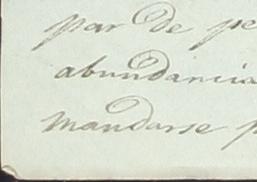 par de pe
abundancia
mandarse p